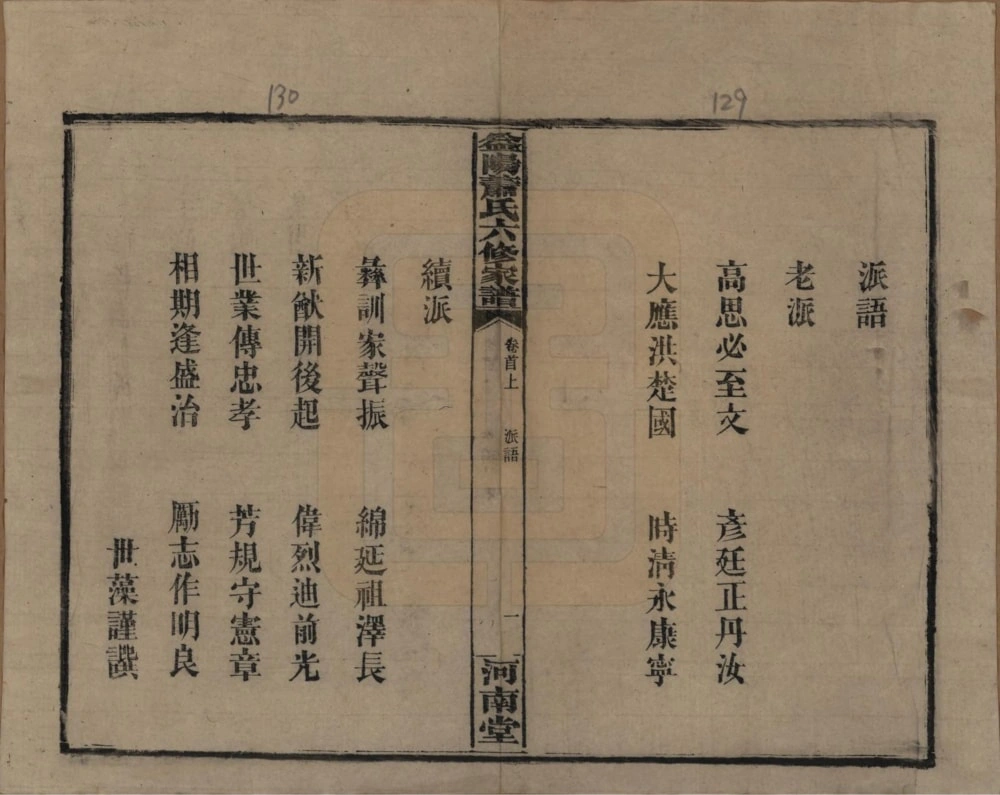 129
派語
老派
高思必至文　彥廷正丹汝
大應洪楚國　時清永康寧
益陽蕭氏六修家譜
卷首上　派語　一
河南堂
130
續派
彝訓家聲振　綿延祖澤長
新猷開後起　偉烈迪前光
世業傳忠孝　芳規守憲章
相期逢盛治　勵志作明良
世藻謹譔